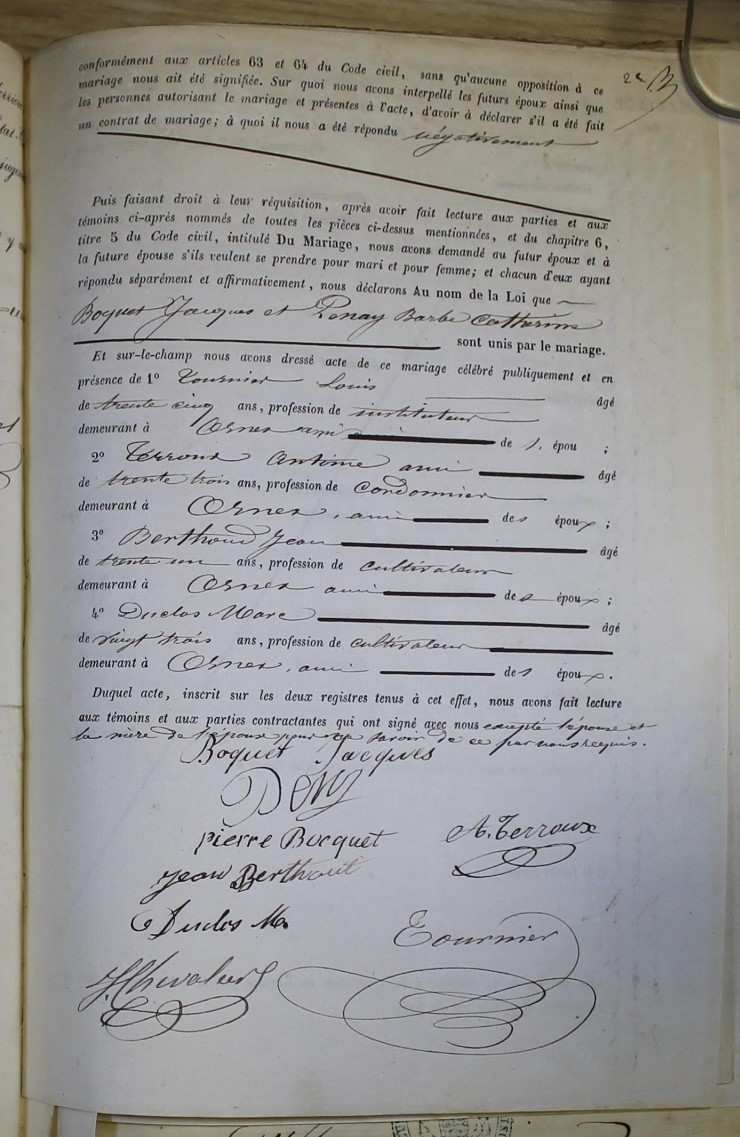 conformément aux articles 63 et 64 du Code civil, sans qu'aucune opposition à ce
mariage nous ait été signifiée. Sur quoi nous avons interpellé les futurs époux ainsi que
les personnes autorisant le mariage et présentes à l'acte, d'avoir à déclarer s'il a été fait
un contrat de mariage; à quoi il nous a été répondu négativement
Puis faisant droit à leur réquisition, après avoir fait lecture aux parties et aux
témoins ci-après nommés de toutes les pièces ci-dessus mentionnées, et du chapitre 6,
titre 5 du Code civil, intitulé Du Mariage, nous avons demandé au futur époux et à
la future épouse s'ils veulent se prendre pour mari et pour femme; et chacun d'eux ayant
répondu séparément et affirmativement, nous déclarons Au nom de la Loi que
Boquet Jacques et Penay Barbe Catherine
sont unis par le mariage.
Et sur-le-champ nous avons dressé acte de ce mariage célébré publiquement et en
présence de 1º Tournier Louis âgé
de trente cinq ans, profession de instituteur
demeurant à Ornex ami de s. épou ;
2º Terroux Antoine ami âgé
de trente trois ans, profession de cordonnier
demeurant à Ornex, ami des époux;
3º Berthoud Jean âgé
de trente un ans, profession de cultivateur
demeurant à Ornex ami des époux;
4º Duclos Marc âgé
de vingt trois ans, profession de cultivateur
demeurant à Ornex, ami des époux.
Duquel acte, inscrit sur les deux registres tenus à cet effet, nous avons fait lecture
aux témoins et aux parties contractantes qui ont signé avec nous excepté l'épouse et
la mère de l'époux pour ne savoir de ce par nous requis.
Boquet Jacques
Pierre Bocquet A. Terroux
Jean Berthout
Duclos M.
Tournier